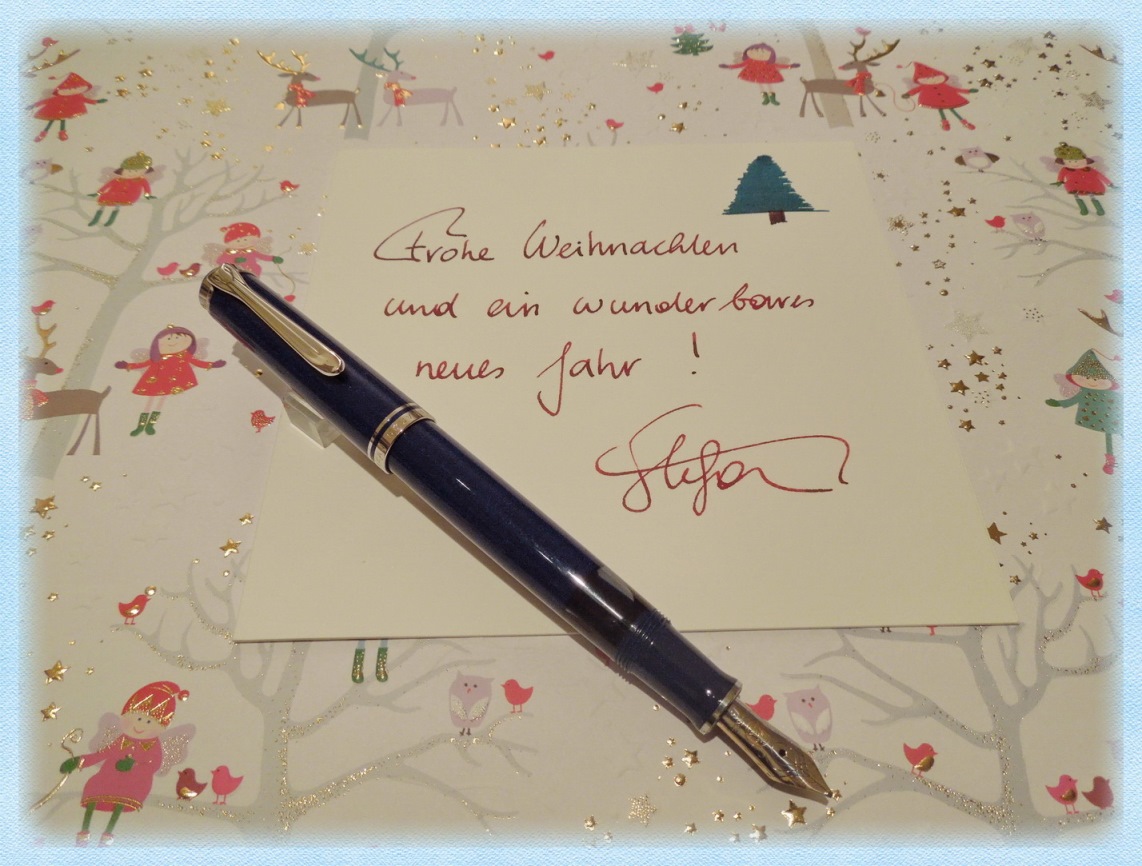 Frohe Weihnachten
und ein wunderbares
neues Jahr !
Stefan